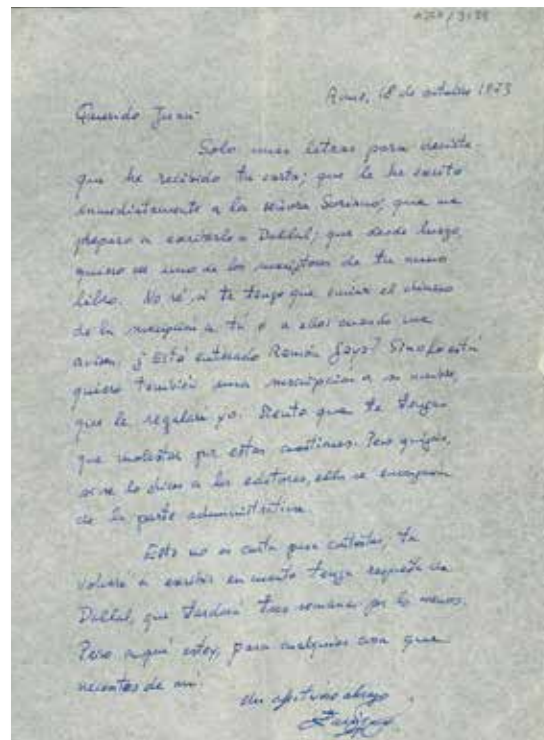 Roma, 18 de octubre 1973
Querido Juan:
Solo unas letras para decirte
que he recibido tu carta; que le he escrito
inmediatamente a la señora Soriano; que me
preparo a escribirle a Dallal; que desde luego,
quiero ser uno de los suscriptores de tu nuevo
libro. No sé, si te tengo que enviar el dinero
de la suscripción a tí o a ellos cuando me
avisen. ¿Está enterado Ramón Gaya? Si no lo está
quiero también una suscripción a su nombre,
que le regalaré yo. Siento que te tengas
que molestar por estas cuestiones. Pero quizás,
si se lo dices a los editores, ellos se encarguen
de la parte administrativa.
Esto no es carta para contestar, te
volveré a escribir en cuanto tenga respuesta de
Dallal, que tardará tres semanas por lo menos.
Pero aquí estoy, para cualquier cosa que
necesites de mí.
Un afectuoso abrazo